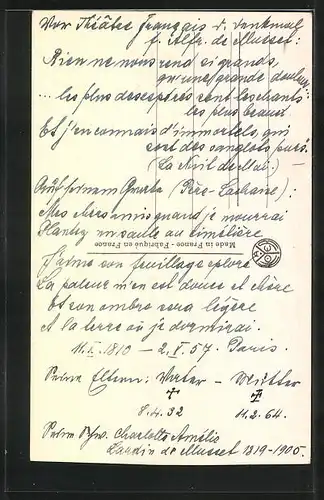 Vor Théâtre Français d. Denkmal
f. Alfr. de Musset:
Rien ne nous rend si grands,
qu'une grande douleur
... les plus desespérés sont les chants
les plus beaux.
Et j'en connais d'immortels, qui
sont des sanglots purs.
(La Nuit de Mai.)
Auf seinem Grabe (Père-Lachaise):
Mes chers amis quand je mourrai
Plantez un saule au cimetière
Made in France - Fabriqué en France
J'aime son feuillage éploré
La paleur m'en est douce et chère
Et son ombre sera légère
A la terre où je dormirai.
11.I.1810 – 2.V.57. Paris.
Seine Eltern: Vater – Mutter
† †
8.4.32 11.2.64.
Seine Schw. Charlotte Amélie
Lardin de Musset 1819-1905.